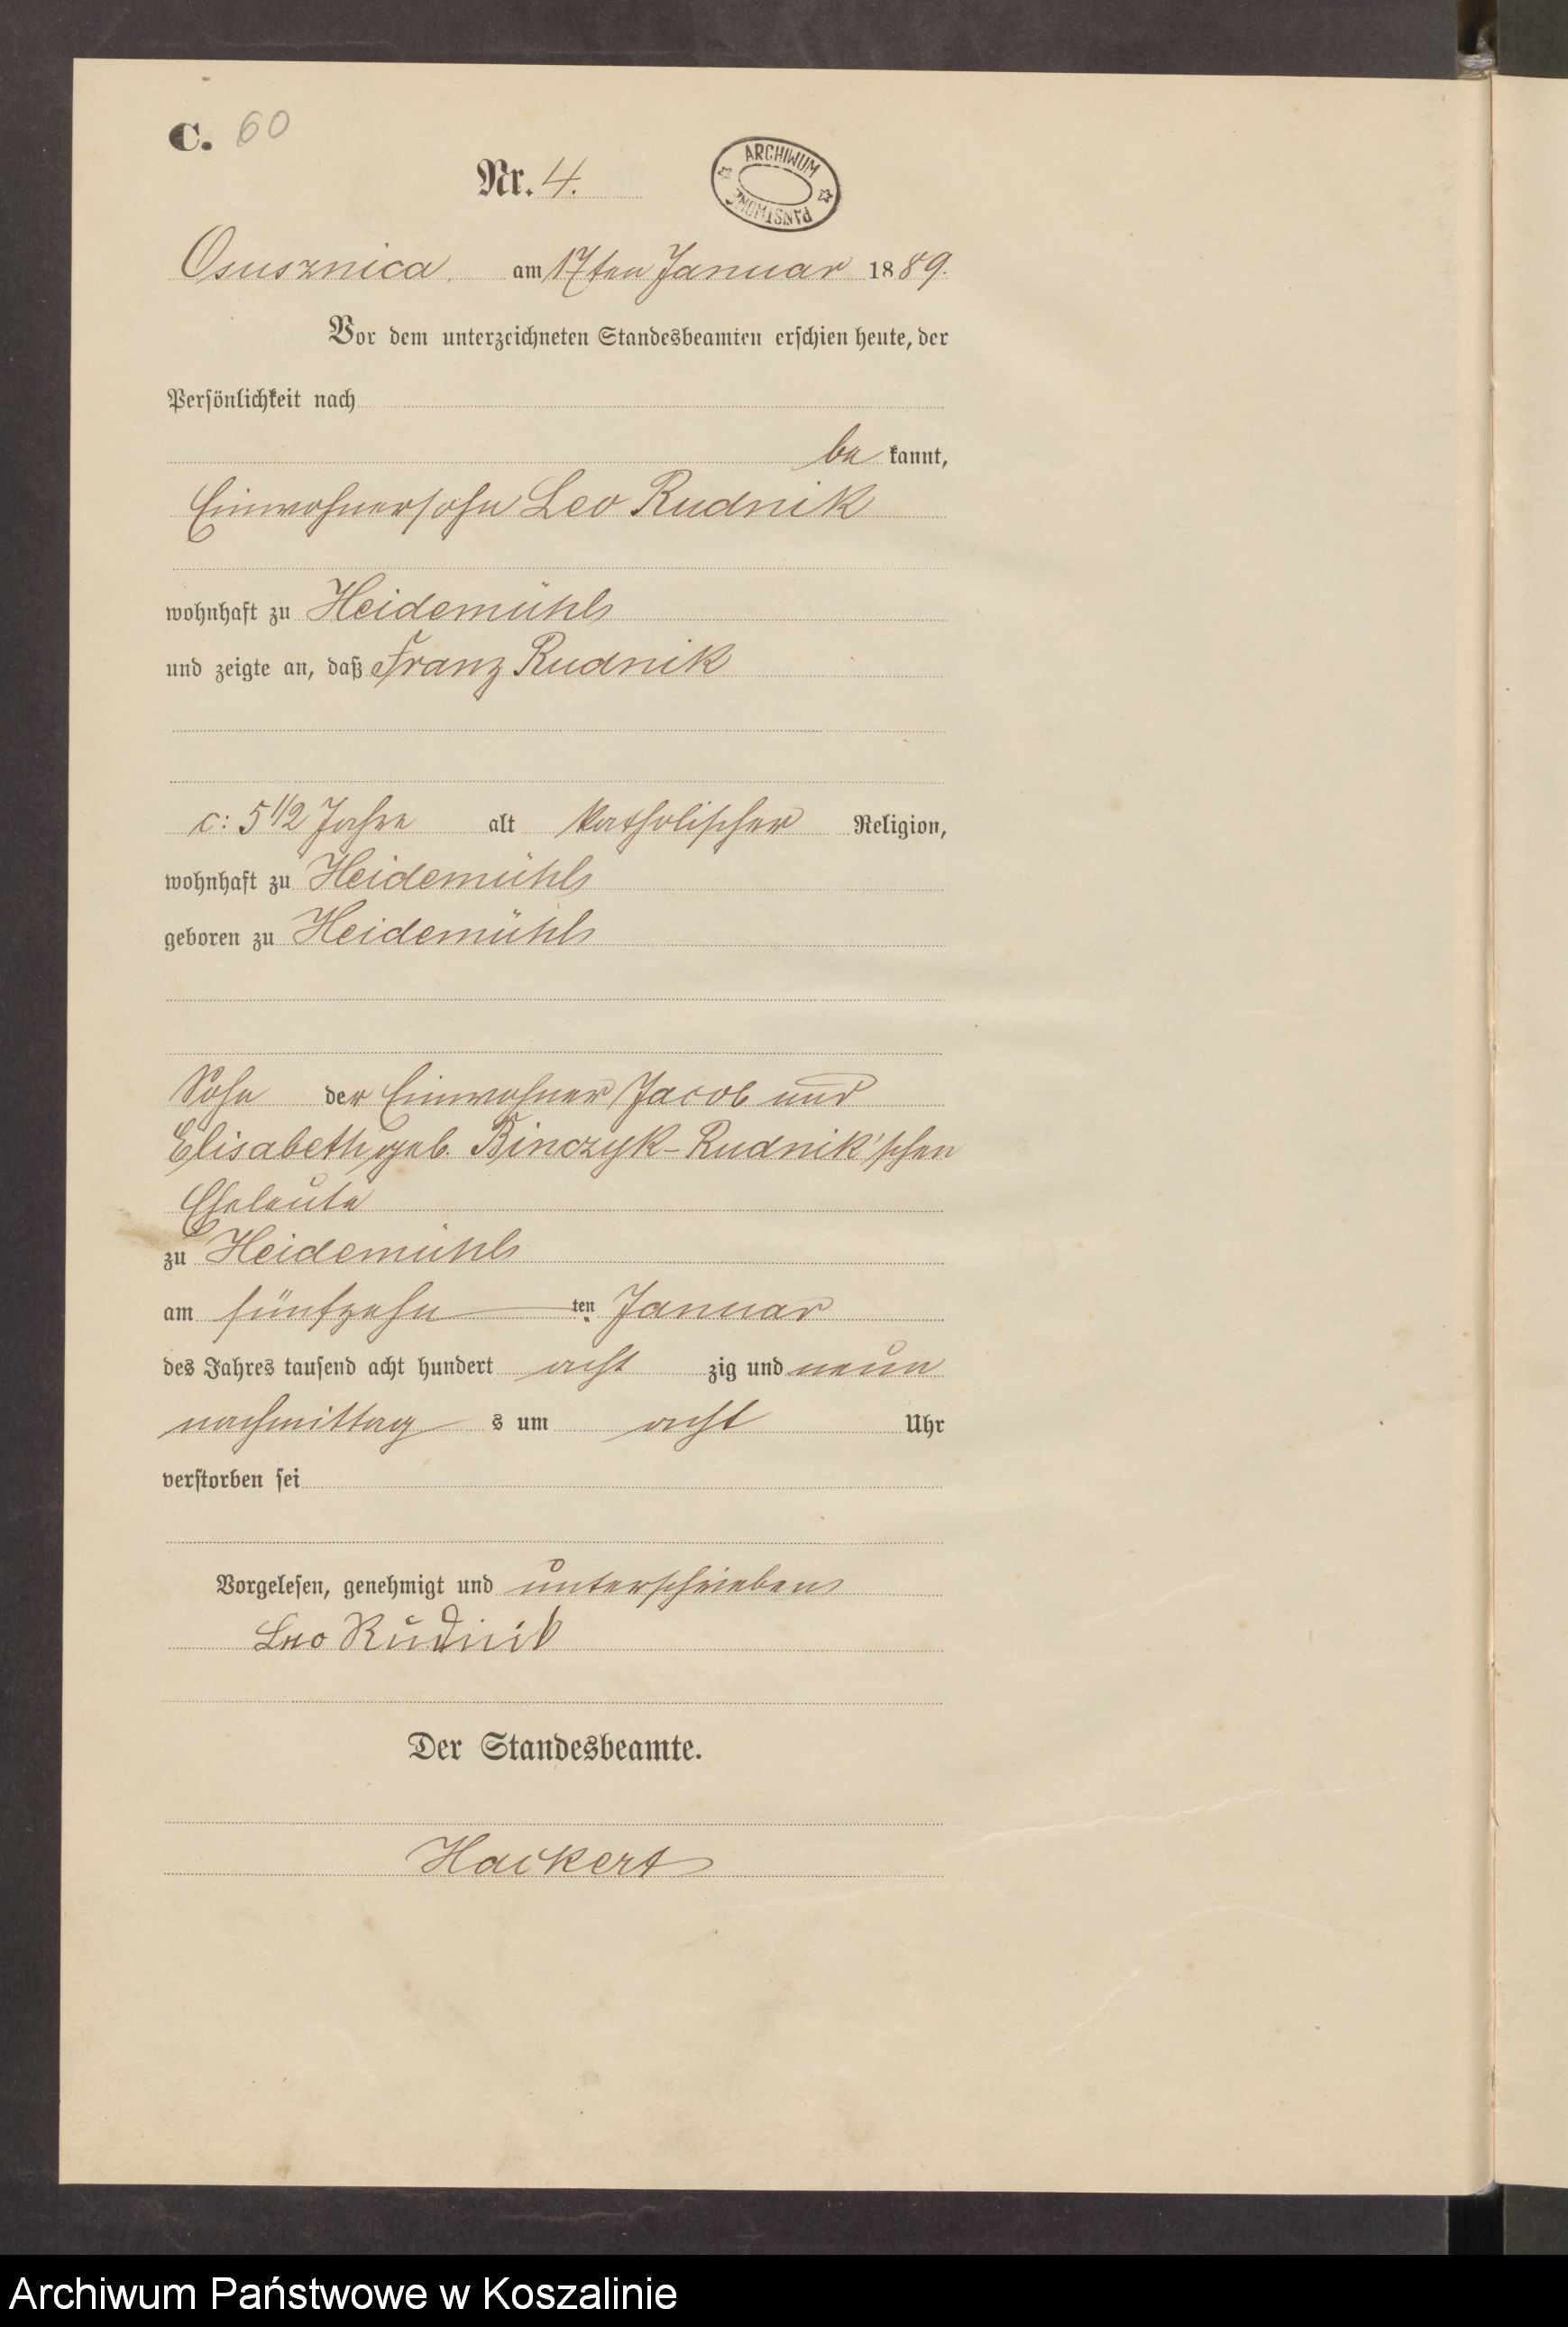 C. 60
Nr. 4.
ARCHIWUM PAŃSTWOWE
Osusznica. am 17ten Januar 1889.
Vor dem unterzeichneten Standesbeamten erschien heute, der
Persönlichkeit nach
be kannt,
Einwohnersohn Leo Rudnik
wohnhaft zu Heidemühle
und zeigte an, daß Franz Rudnik
c: 5 1/2 Jahre alt katholischer Religion,
wohnhaft zu Heidemühle
geboren zu Heidemühle
Sohn der Einwohner Jacob und
Elisabeth geb. Binczyk-Rudnik'schen
Eheleute
zu Heidemühle
am fünfzehn ten Januar
des Jahres tausend acht hundert acht zig und neun
nachmittag s um acht Uhr
verstorben sei
Vorgelesen, genehmigt und unterschrieben
Leo Rudnik
Der Standesbeamte.
Hackert
Archiwum Państwowe w Koszalinie